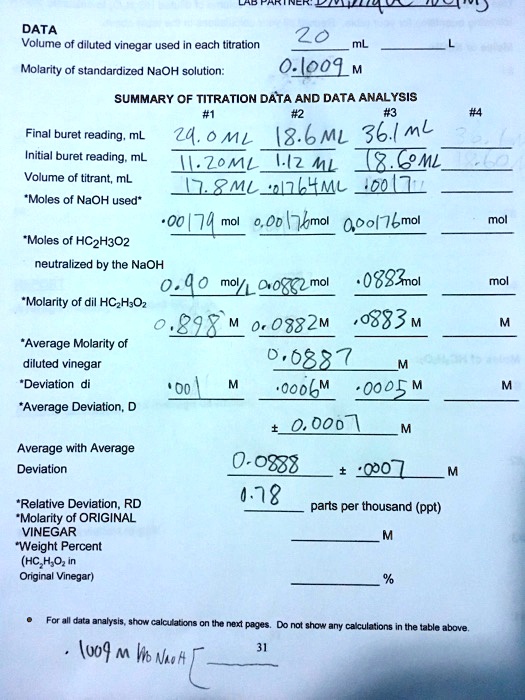 LAB PARTNER:
DATA
Volume of diluted vinegar used in each titration 20 mL L
Molarity of standardized NaOH solution: 0.1009 M
SUMMARY OF TITRATION DATA AND DATA ANALYSIS
#1 #2 #3 #4
Final buret reading, mL 29.0 ML 18.6 ML 36.1 mL
Initial buret reading, mL 11.20ML 1.12 ML 18.60ML
Volume of titrant, mL 17.8ML .01764ML
*Moles of NaOH used*
.00179 mol 0.00176mol 0.00176mol mol
*Moles of HC2H3O2
neutralized by the NaOH
0.90 mol/L 0.0882 mol .0883mol mol
*Molarity of dil HC₂H₃O₂
0.898 M 0.0882M .0883 M M
*Average Molarity of
diluted vinegar 0.0887 M
*Deviation di .001 M .0006M .0005 M M
*Average Deviation, D
± 0.0007 M
Average with Average
Deviation 0.0888 ± .0007 M
*Relative Deviation, RD 0.78 parts per thousand (ppt)
*Molarity of ORIGINAL
VINEGAR M
*Weight Percent
(HC₂H₃O₂ in
Original Vinegar) %
• For all data analysis, show calculations on the next pages. Do not show any calculations in the table above.
31
.1009 M NaOH